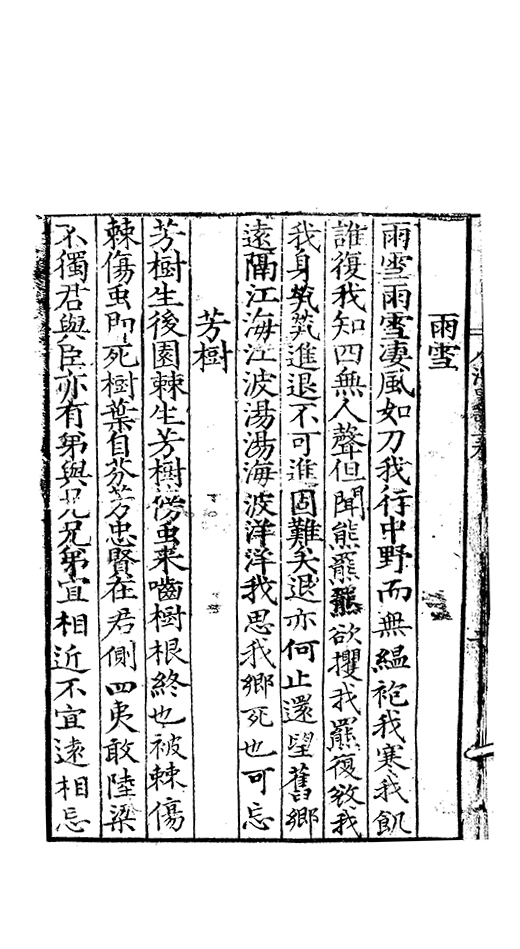 雨雪
雨雪雨雪淒風如刀我行中野而無緼袍我寒我飢
誰復我知四無人聲但聞熊羆羆欲攫我羆復
我身煢煢進退不可進固難矣退亦何止還望舊鄉
遠隔江海江波湯湯海波洋洋我思我鄉死也可忘
芳樹
芳樹生後園棘生芳樹傍虫来嚙樹根終也被棘傷
棘傷虫即死樹葉自芬芳忠賢在君側四夷敢陸梁
不獨君與臣亦有弟與兄兄弟宜相近不宜遠相忘